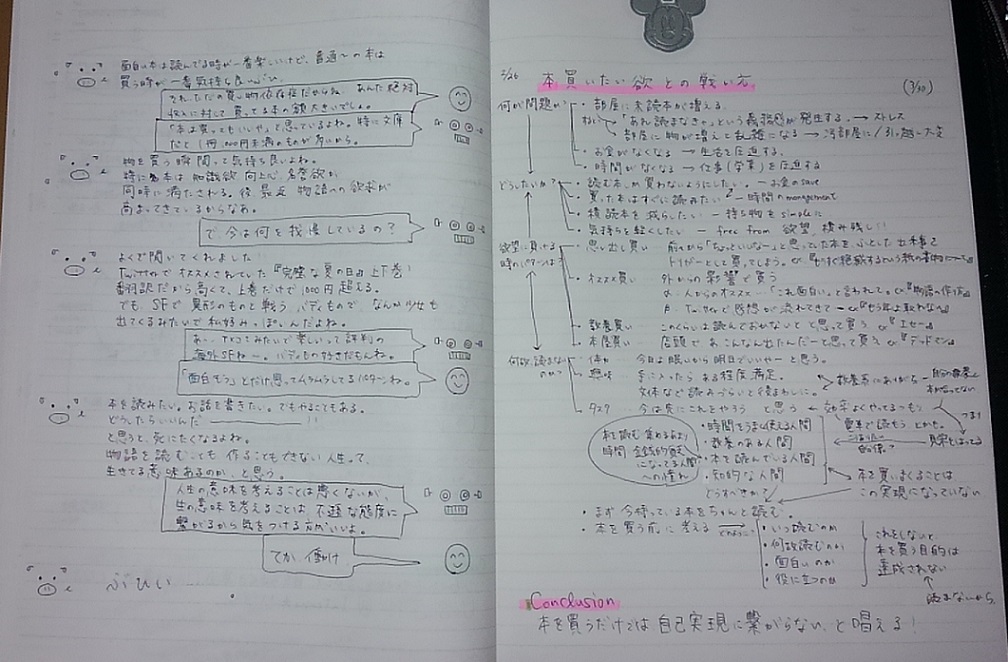 面白い本は読んでる時が一番楽しいけど、普通の本は
買う時が一番気持ち良いぶひ。
それただの買い物依存症だからね あんた絶対
収入に対して買ってる本の額大きいでしょ。
「本は買ってもいいや」と思っているよね。特に文庫
だと1冊1,000円未満のものが多いから。
物を買う瞬間って気持ち良いよね。
特に本は知識欲 向上心 名誉欲が
同時に満たされる。後、最近 物語への欲求が
高まってきているからなあ。
で、今は何を我慢しているの?
よくぞ聞いてくれました!
Twitterでオススメされていた『完璧な夏の日』上下巻!
翻訳だから高くて、上巻だけで1,000円超える。
でも、SFで異形のものと戦う バディもので なんか少女も
出てくるみたいで私好み。っぽいんだよね。
あー、Twitterみたいで楽しいって評判の
海外SFねー。バディもの好きだもんね。
「面白そう」とだけ思ってムラムラしてるパターンね。
本を読みたい。お話を書きたい。でもやることもある。
どうしたらいいんだ――!
と思うと、死にたくなるよね。
物語を読むことも 作ることもできない人生って、
生きてる意味あるのか、と思う。
人生の意味を考えることは悪くないが、
生の意味を考えることは、不遜な態度に
繋がるから気をつける方がいいよ。
てか、働け
ぶひい……
2/26 本買いたい欲との戦い方 (3/10)
何が問題か
・部屋に未読本が増える。
「あれ読まなきゃ」という義務感が発生する。→ストレス
部屋に物が増えて乱雑になる → 汚部屋に/引っ越し大変
・お金がなくなる → 生活を圧迫する。
・時間がなくなる → 仕事(学業)を圧迫する
どうしたいか?
・読む本しか買わないようにしたい。― お金のsave
・買った本はすぐに読みたい ― 時間のmanagement
・積読本を減らしたい ― 持ち物をsimpleに
・気持ちを軽くしたい ― free from 欲望、積み残し!!
欲望に負ける
時のパターンは?
・思い出し買い 前から「ちょっといいなー」と思っていた本をふとした出来事を
トリガーとして買ってしまう。
・オススメ買い 外からの影響で買う
α-人からのオススメ-「これ面白い」と言われて。
β-Twitterで感想が流れてきて
・教養買い このくらいは読んでおかないと と思って買う ex『エセー』
・本屋買い 店頭で あ こんなん出たんだーと思って買う
何故、読まない
のか?
・体力 今日は眠いから明日でいいやーと思う。
・興味 手に入ったら ある程度満足。
文体など読みづらいと後まわしに。
・タスク 今は先にこれをやろう と思う ← 効率よくやってるつもり
電車で読もう とかも。
つまり
本を読む
時間
・時間をうまく使える人間
・教養のある人間
・本を読んでいる人間
・知的な人間
本を買いまくることは
この実現になっていない
どうすべきか?
・まず 今持っている本をちゃんと読む。
・本を買う前に考える
・いつ読むのか
・何故読むのか
・面白いのか
・役に立つのか
これをしないと
本を買う目的は
達成されない
読まないから。
Conclusion
本を買うだけでは 自己実現に繋がらない、と唱える!